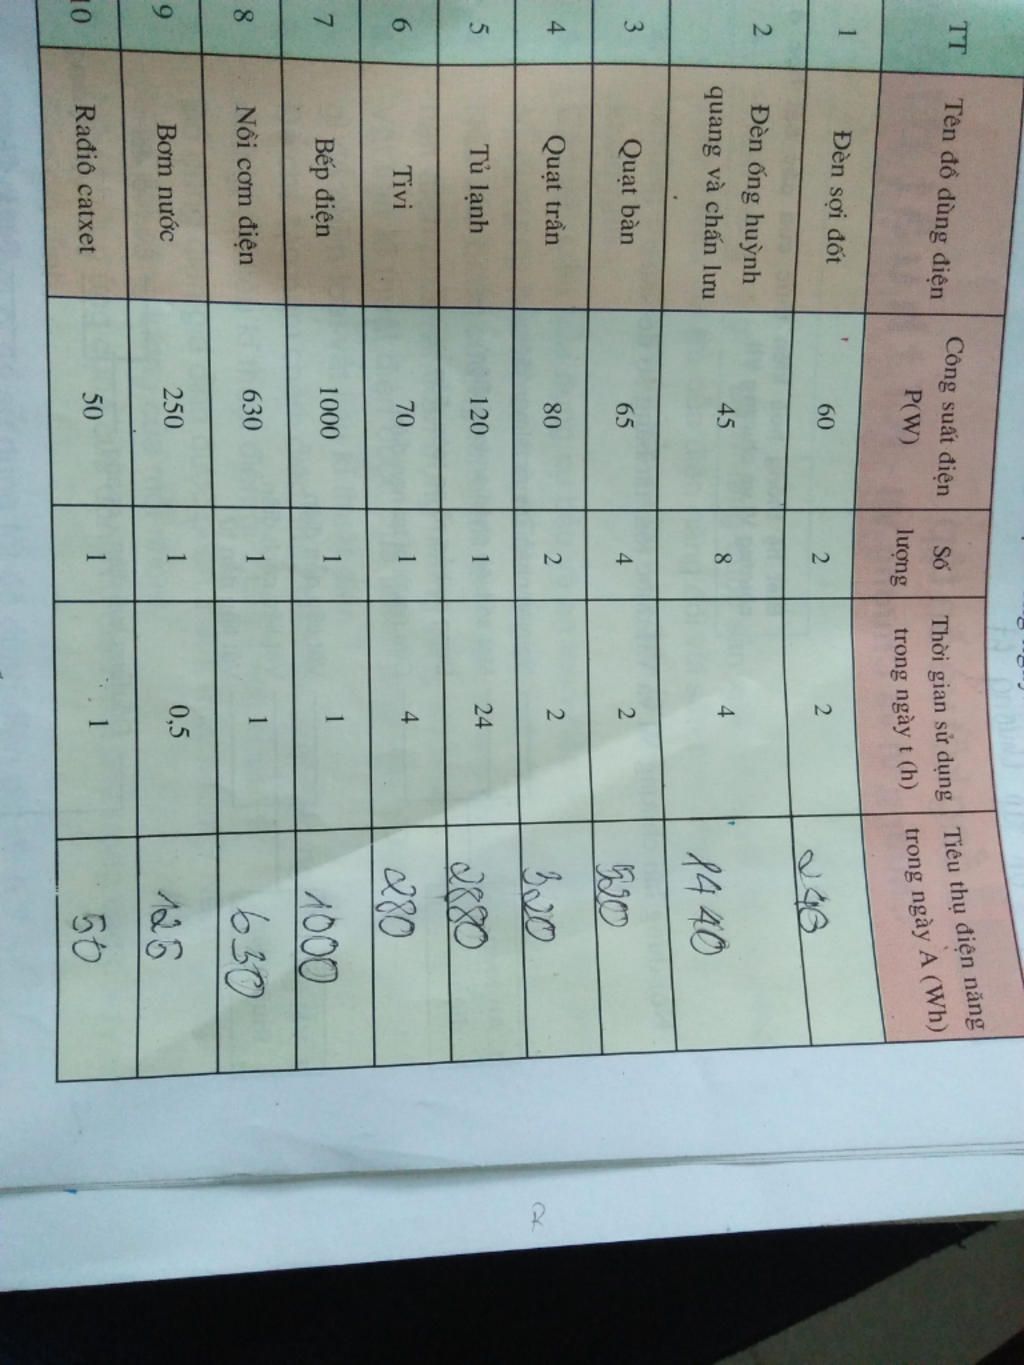 TT Tên đồ dùng điện Công suất điện P(W) Số lượng Thời gian sử dụng trong ngày t (h) Tiêu thụ điện năng trong ngày A (Wh)
1 Đèn sợi đốt 60 2 2 240
2 Đèn ống huỳnh quang và chấn lưu 45 8 4 1440
3 Quạt bàn 65 4 2 520
4 Quạt trần 80 2 2 320
5 Tủ lạnh 120 1 24 2880
6 Tivi 70 1 4 280
7 Bếp điện 1000 1 1 1000
8 Nồi cơm điện 630 1 1 630
9 Bơm nước 250 1 0,5 125
10 Rađiô catxet 50 1 1 50